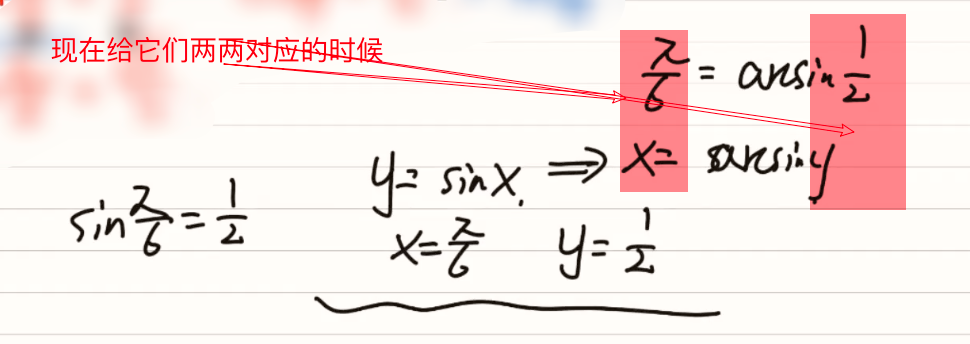 现在给它们两两对应的时候
π/6 = arsin 1/2
y = sinx. ⟹ x = arcsiny
sin π/6 = 1/2
x = π/6 y = 1/2